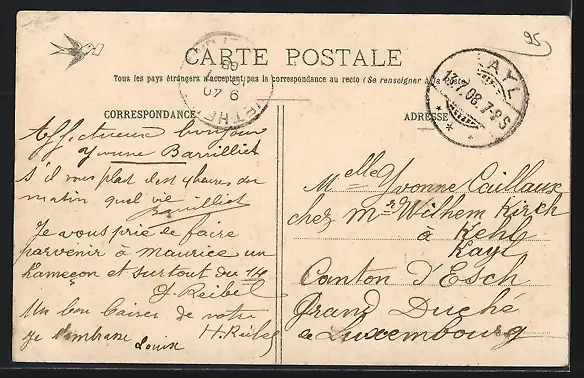 95
CARTE POSTALE
Tous les pays étrangers n'acceptent pas la correspondance au recto (Se renseigner à la Poste)
CORRESPONDANCE
ADRESSE
KAYL
13.7.08. 7-8 S
Affectueux bonjour
Yvonne Barrilliet
S'il vous plait dest 4 heures du
matin quel vie
Barrilliet
Je vous prie de faire
parvenir à Maurice un
hameçon et surtout du 14
J. Reibel
Un bon baiser de votre
Je t'embrasse H. Reibel
Louise
Melle Yvonne Caillaux
chez Mr Wilhem Kirch
à Kehl
Kayl
Canton d'Esch
Grand Duché
de Luxembourg